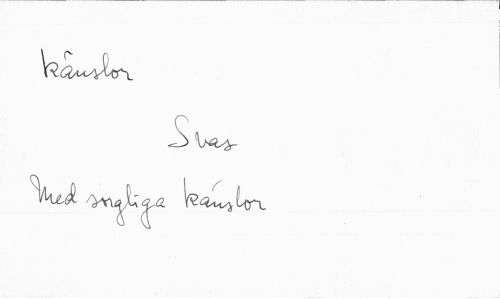 känslor
Svas
Med sorgliga känslor